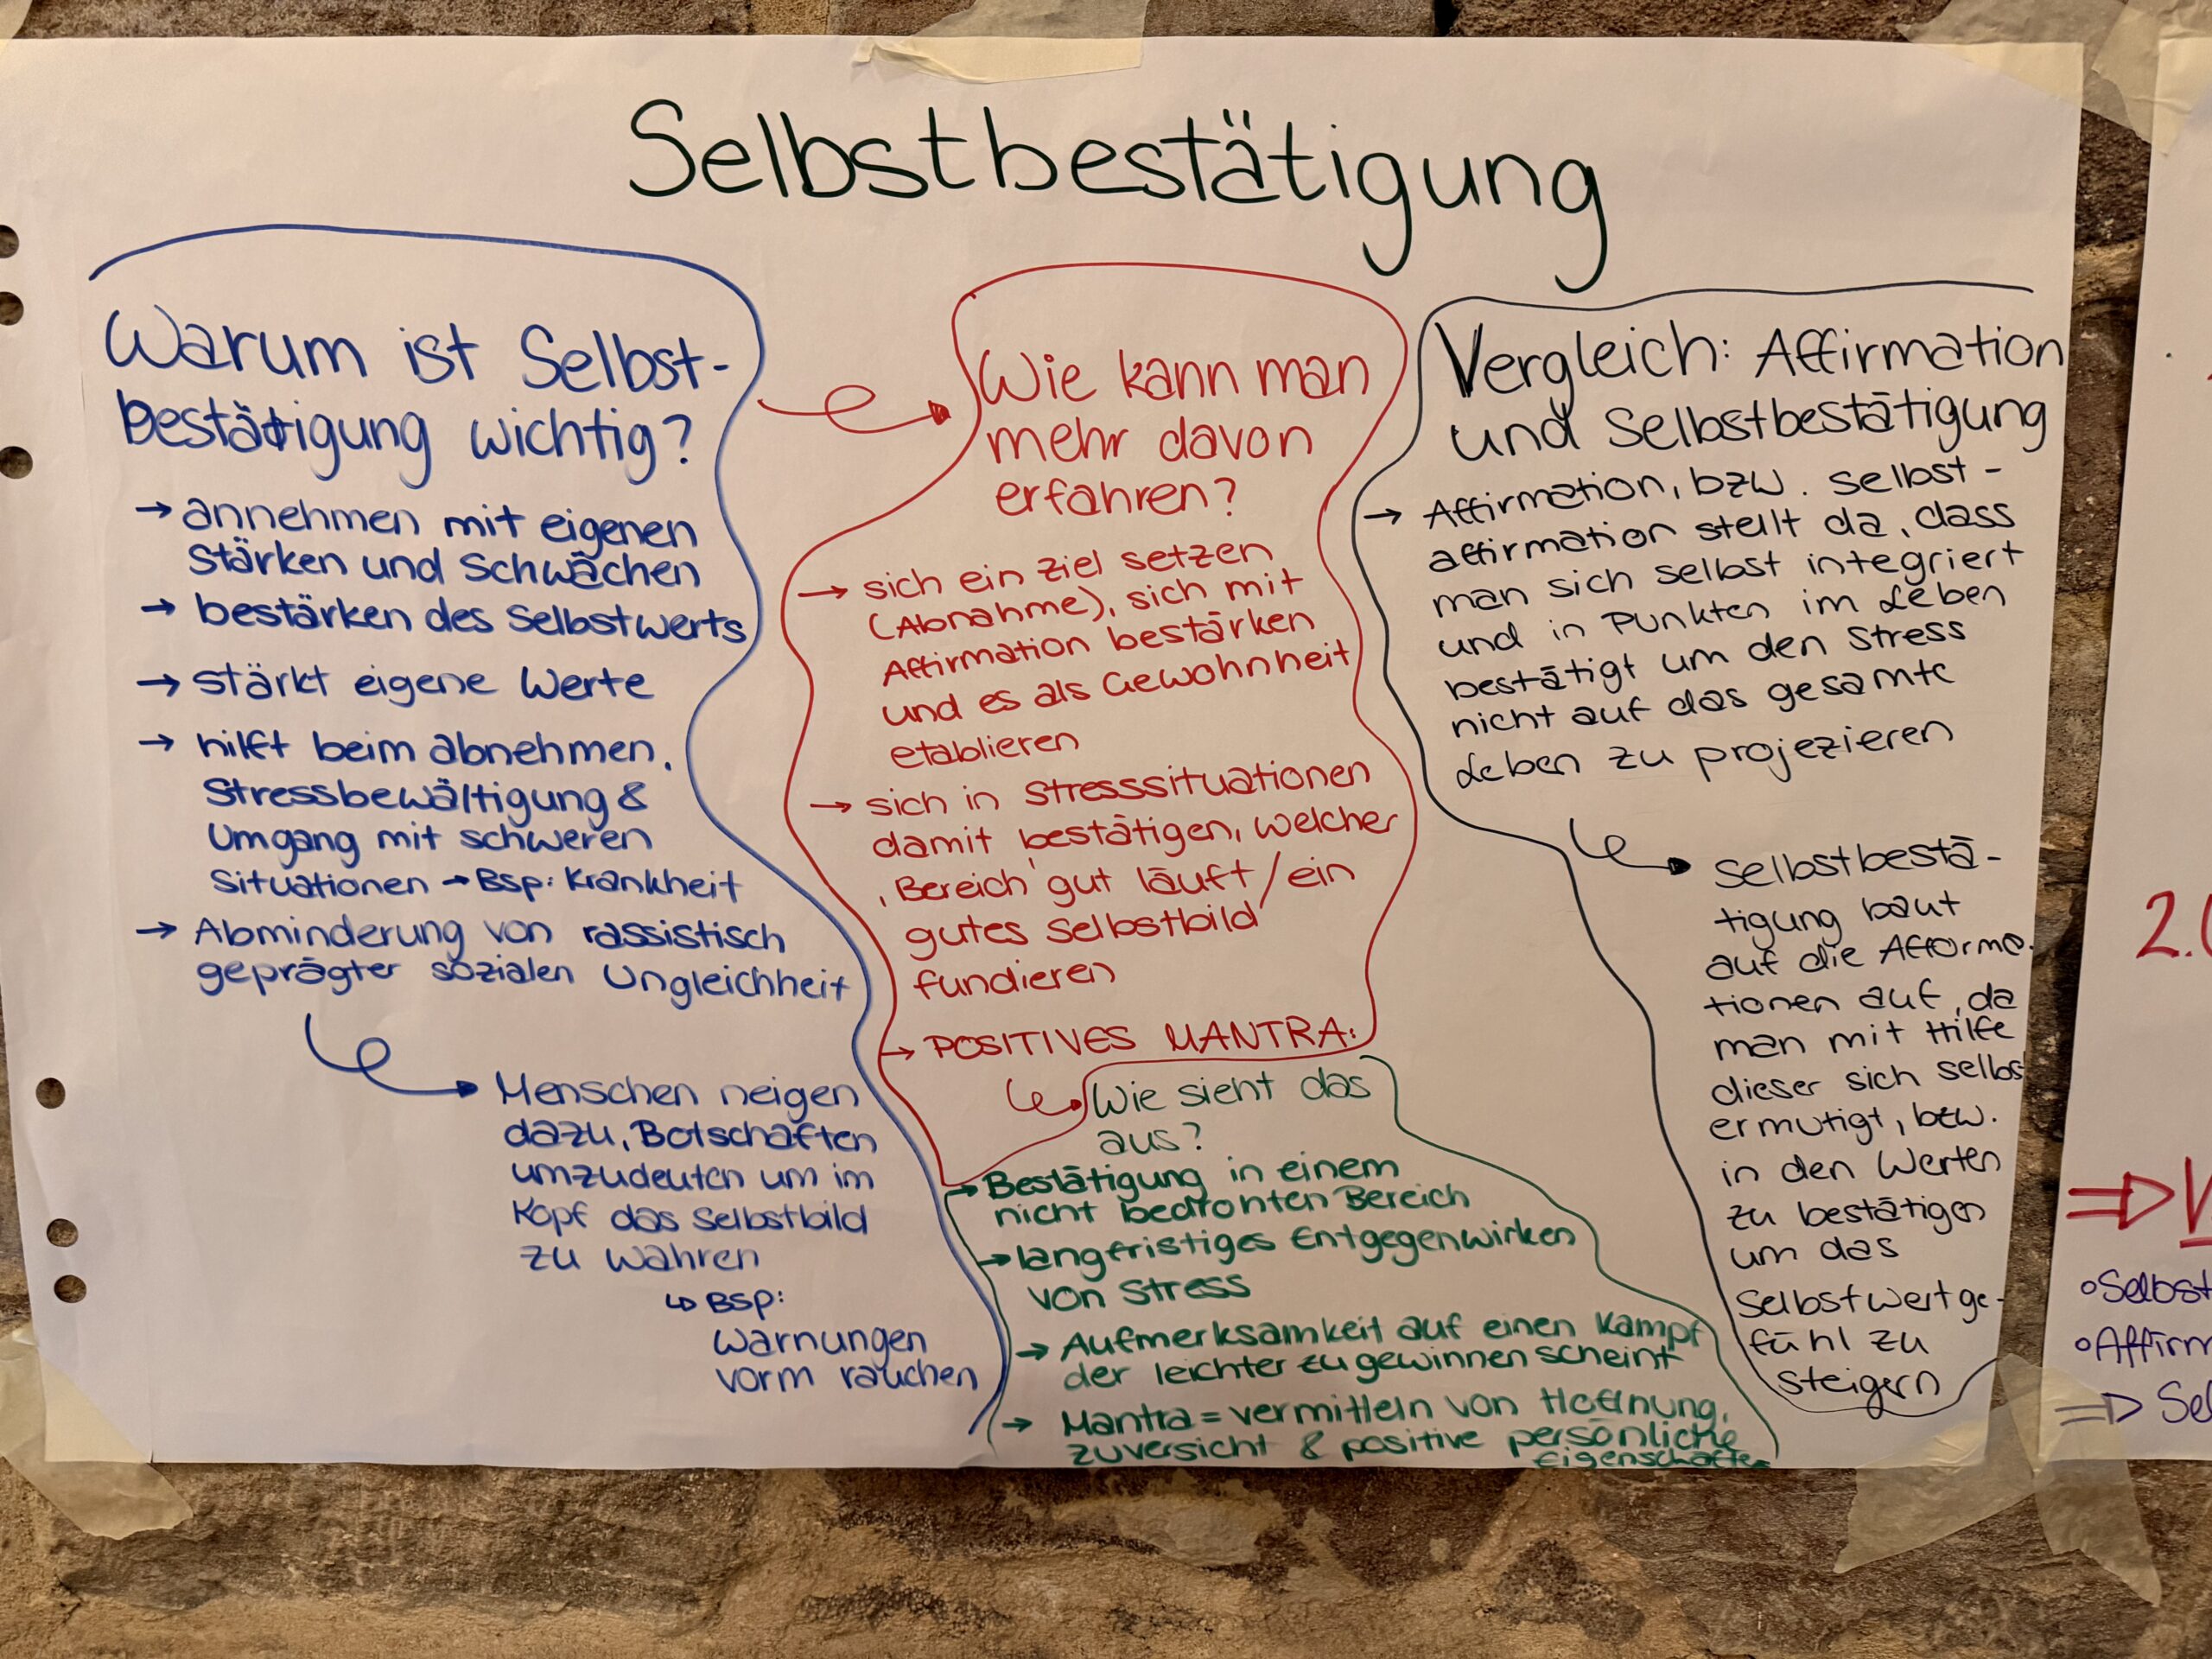 Selbstbestätigung
Warum ist Selbst-
bestätigung wichtig?
→ annehmen mit eigenen
Stärken und Schwächen
→ bestärken des Selbstwerts
→ stärkt eigene Werte
→ hilft beim abnehmen,
Stressbewältigung &
Umgang mit schweren
Situationen → Bsp: Krankheit
→ Abminderung von rassistisch
geprägter sozialen Ungleichheit
Menschen neigen
dazu, Botschaften
umzudeuten um im
Kopf das Selbstbild
zu wahren
↳ Bsp:
Warnungen
vorm rauchen
Wie kann man
mehr davon
erfahren?
→ sich ein ziel setzen
(Abnahme), sich mit
Affirmation bestärken
und es als Gewohnheit
etablieren
→ sich in Stresssituationen
damit bestätigen, welcher
‚Bereich' gut läuft/ein
gutes Selbstbild
fundieren
→ POSITIVES MANTRA:
Wie sieht das
aus?
→ Bestätigung in einem
nicht bedrohten Bereich
→ langfristiges Entgegenwirken
von Stress
→ Aufmerksamkeit auf einen Kampf
der leichter zu gewinnen scheint
→ Mantra = vermitteln von Hoffnung,
zuversicht & positive persönliche
Eigenschaften
Vergleich: Affirmation
und Selbstbestätigung
→ Affirmation, bzw. Selbst-
affirmation stellt da, dass
man sich selbst integriert
und in Punkten im Leben
bestätigt um den Stress
nicht auf das gesamte
Leben zu projezieren
Selbstbestä-
tigung baut
auf die Afforma-
tionen auf, da
man mit Hilfe
dieser sich selbst
ermutigt, bzw.
in den Werten
zu bestätigen
um das
Selbstwertge-
fühl zu
steigern
2.
⇒
∘Selbst
∘Affirm
⇒ Sel